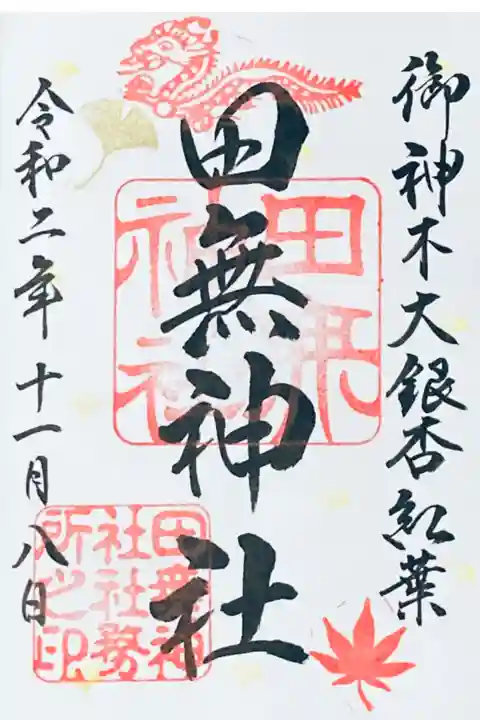 御神木大銀杏紅葉
田無神社
令和二年十一月八日
田無神社
田無神社社務所之印